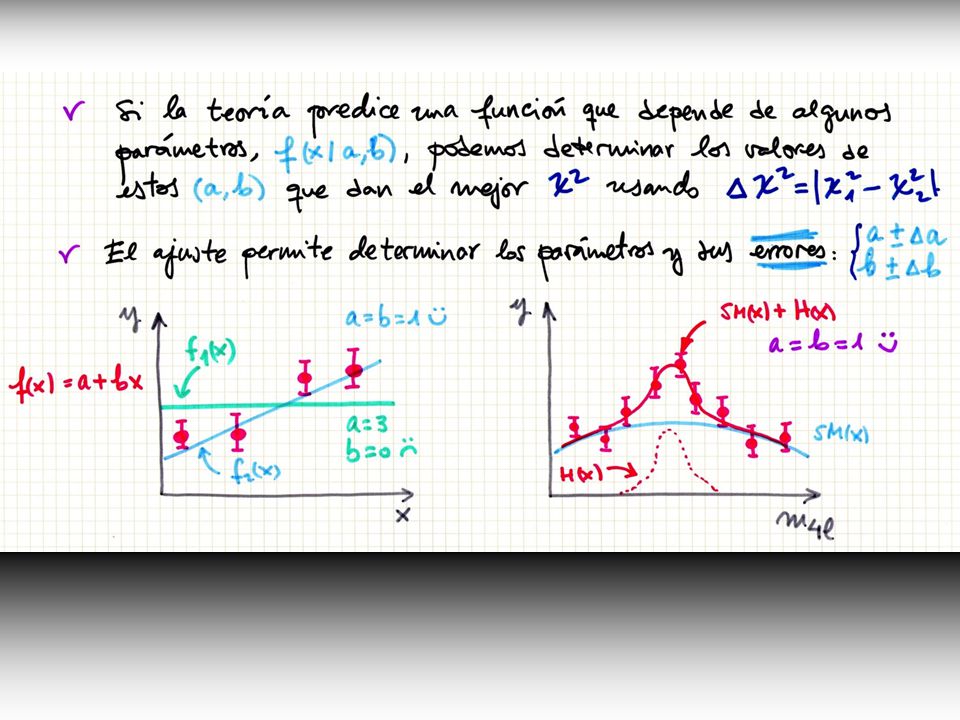 ✓ Si la teoría predice una función que depende de algunos
parámetros, f(x|a,b), podemos determinar los valores de
estos (a,b) que dan el mejor χ² usando Δχ²=|χ₁²-χ₂²|
✓ El ajuste permite determinar los parámetros y sus errores: { a ± Δa
b ± Δb
y
a=b=1 ☺
f₁(x)
f(x)=a+bx
a=3
b=0 ☹
f₂(x)
x
y
SM(x)+H(x)
a=b=1 ☺
SM(x)
H(x)
m₄ℓ